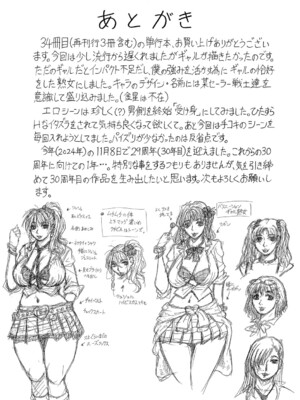 あとがき
34冊目(再刊行3冊含む)の単行本、お買い上げありがとうござい
ます。今回は少し流行から遅れましたがギャルが描きたかったのです。
ただのギャルだとインパクト不足だし、僕の強みを活かす為にギャルの恰好
をした熟女にしました。キャラのデザイン・名前には某セーラー戦士達を
意識して盛り込みました。(金星は不在)
エロシーンは珍しく(?)男側を終始「受け身」にしてみました。ひたすら
Hなイタズラをされて気持ち良くなって欲しくて。あと今回は手コキのシーンを
毎回入れようとしてました。パイズリが少なかったのは反省点です。
今年(2024年)の11月8日で29周年(30年目)を迎えました。これからの30
周年に向けての1年…。特別な事をするつもりもありませんが、気を引き締
めて30周年目の作品を生み出したいと思います。次もよろしくお願いし
ます。
リボン